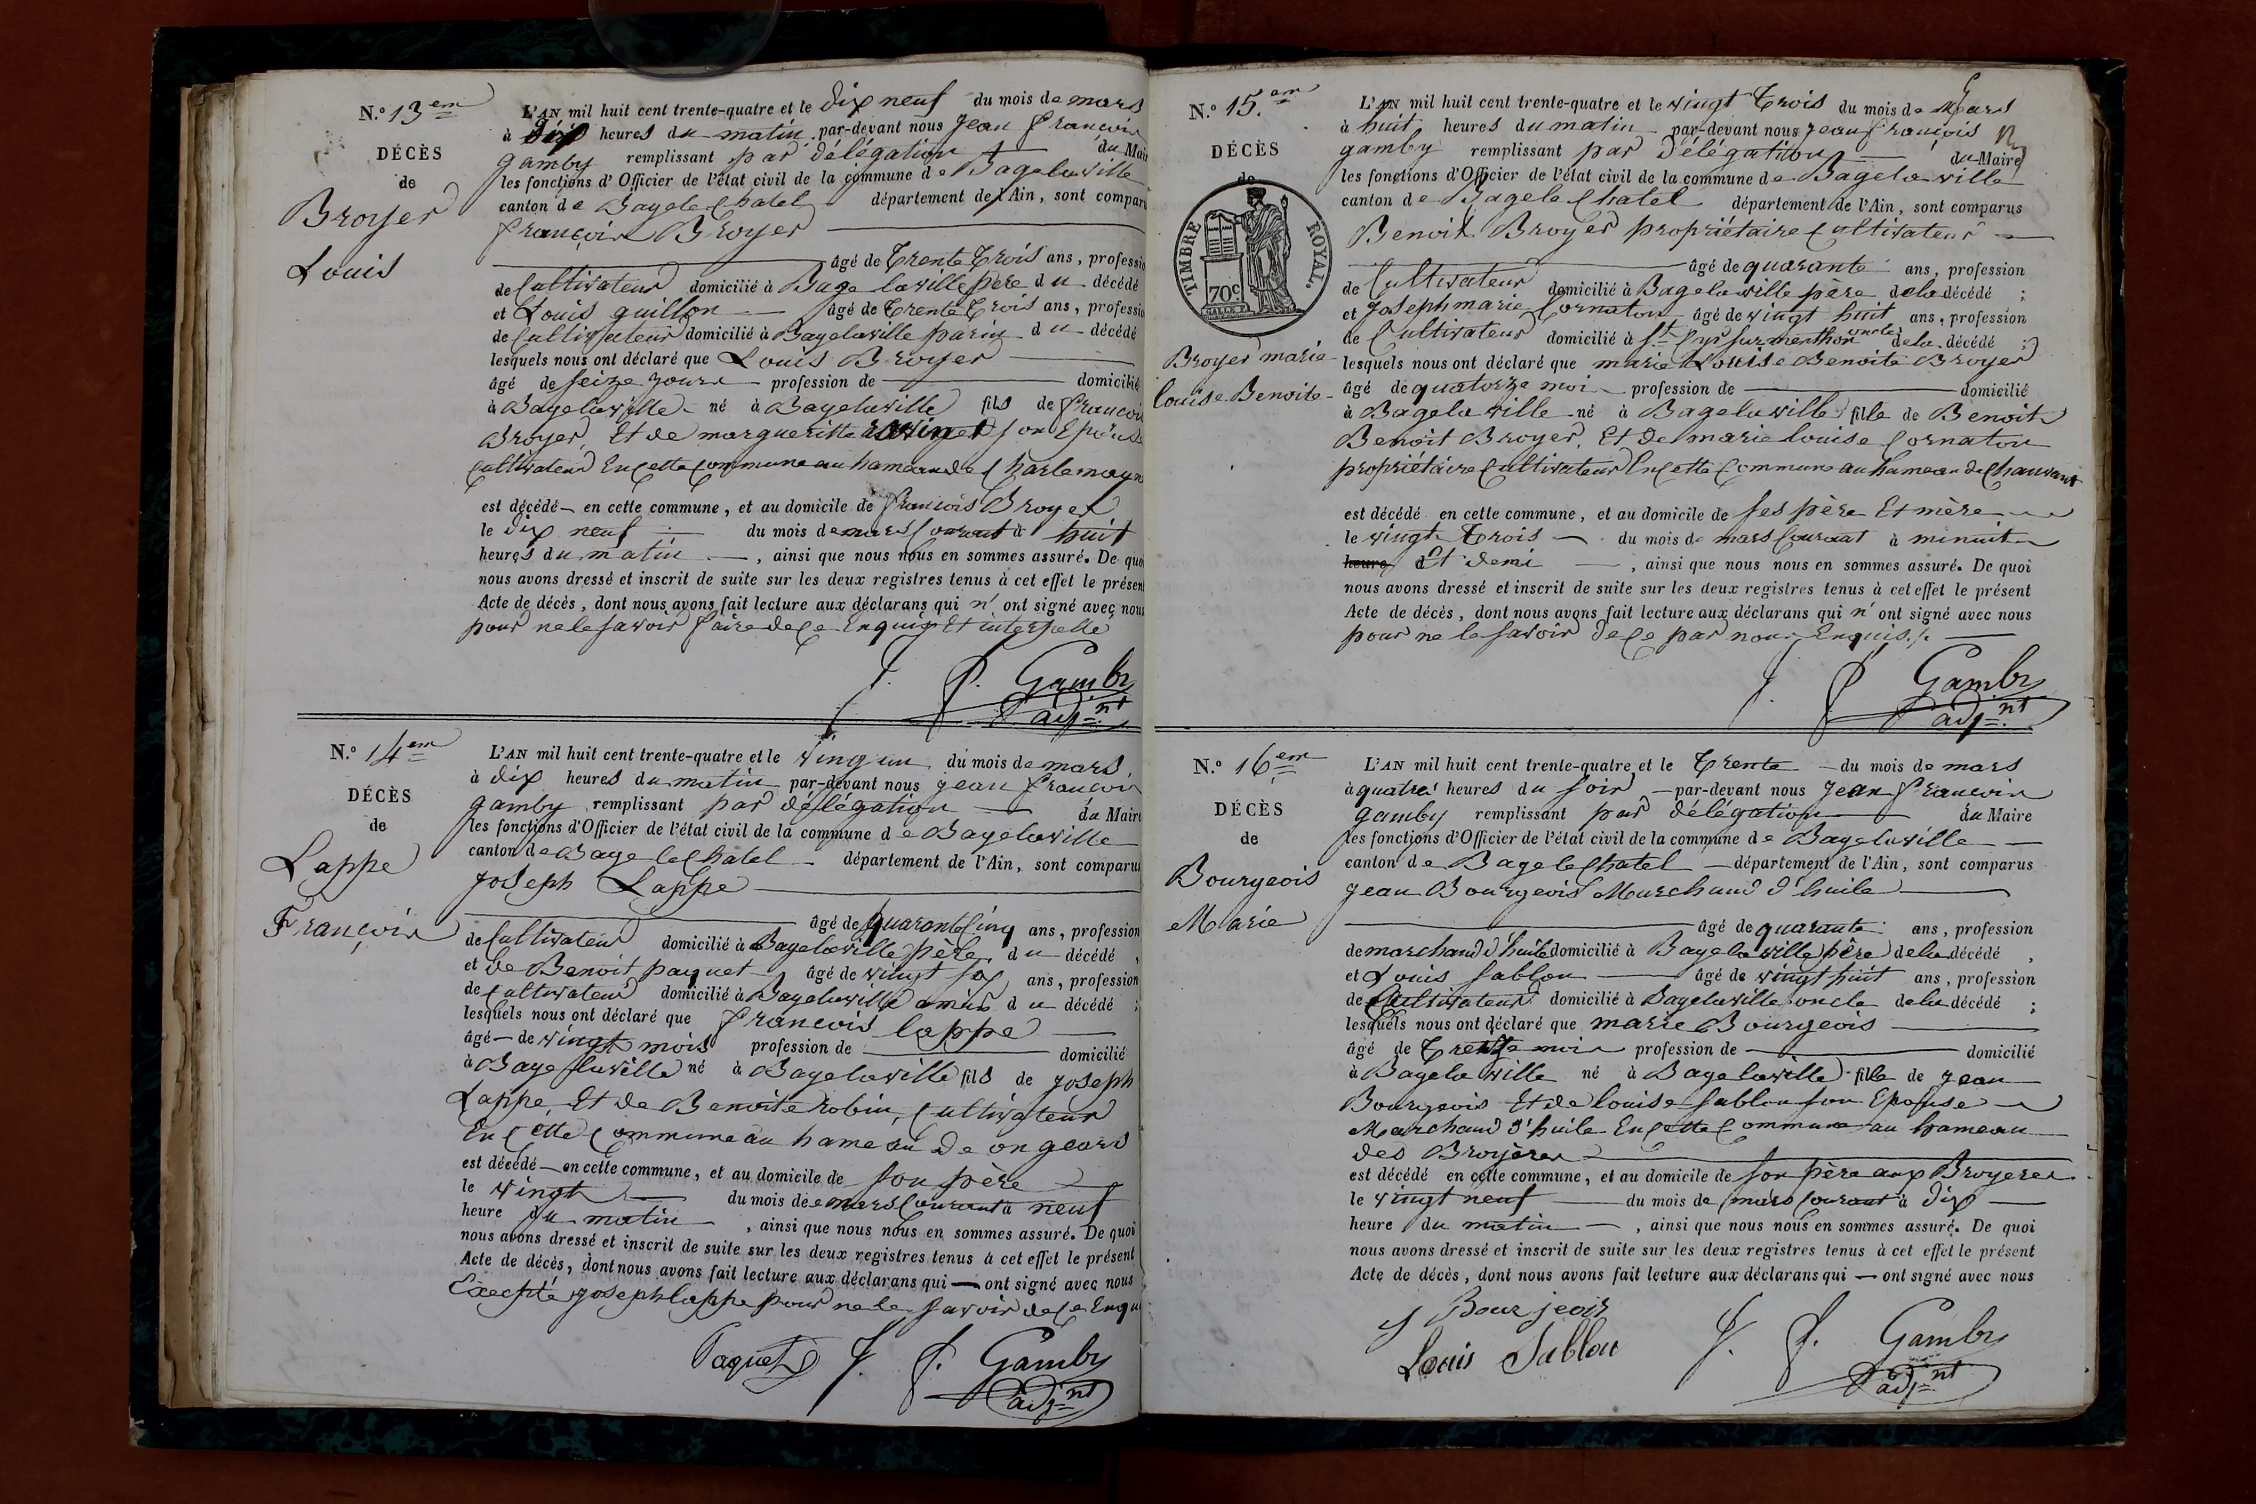 N.º 13em
DÉCÈS
de
Broyer
Louis
L'AN mil huit cent trente-quatre et le dix neuf du mois de mars
à dix heures du matin par-devant nous Jean françois
gamby remplissant par délégation du Mair
les fonctions d'Officier de l'état civil de la commune de Bagelaville
canton de Bagelechatel département de l'Ain, sont comparu
françois Broyer
âgé de trente trois ans, professio
de Cultivateur domicilié à Bage laville père du décédé
et Louis guillon âgé de trente trois ans, professio
de Cultivateur domicilié à Bagelaville parin du décédé
lesquels nous ont déclaré que Louis Broyer
âgé de seize jours profession de domicilié
à Bagelaville né à Bagelaville fils de françois
Broyer, Et de margueritte son Epouse
Cultivateur En cette Commune au hameau de Charlemagn
est décédé en cette commune, et au domicile de françois Broyer
le dix neuf du mois de mars Courant à huit
heures du matin, ainsi que nous nous en sommes assuré. De quoi
nous avons dressé et inscrit de suite sur les deux registres tenus à cet effet le présent
Acte de décès, dont nous avons fait lecture aux déclarans qui n'ont signé avec nous
pour ne le savoir faire de ce Enquis Et interpellé
J. f. Gamby
adjnt
N.º 14em
DÉCÈS
de
Lappe
François
L'AN mil huit cent trente-quatre et le vingun du mois de mars
à dix heures du matin par-devant nous jean françois
gamby remplissant par délégation du Maire
les fonctions d'Officier de l'état civil de la commune de Bagelaville
canton de Bage leChatel département de l'Ain, sont comparus
joseph Lappe
âgé de quarante Cinq ans, profession
de Cultivateur domicilié à Bagelaville père du décédé,
et de Benoit paquet âgé de vingt six ans, profession
de Cultivateur domicilié à Bagelaville amis du décédé;
lesquels nous ont déclaré que françois lappe
âgé de vingt mois profession de domicilié
à Bage laville né à Bagelaville fils de joseph
Lappe, Et de Benoite robin, Cultivateur
En Cette Commune au hameau de ongears
est décédé en cette commune, et au domicile de son père
le vingt du mois de mars Courant à neuf
heure du matin, ainsi que nous nous en sommes assuré. De quoi
nous avons dressé et inscrit de suite sur les deux registres tenus à cet effet le présent
Acte de décès, dont nous avons fait lecture aux déclarans qui ont signé avec nous
Execpté joseph lappe pour ne le savoir de ce Enqui
Paquet J. f. Gamby
adjnt
N.º 15.em
DÉCÈS
de
TIMBRE ROYAL.
70c
Broyer marie
louise Benoite
L'AN mil huit cent trente-quatre et le vingt trois du mois de Mars
à huit heures du matin par-devant nous jean françois
gamby remplissant par délégation du Maire
les fonctions d'Officier de l'état civil de la commune de Bagelaville
canton de Bagele Chatel département de l'Ain, sont comparus
Benoit Broyer propriétaire Cultivateur
âgé de quarante ans, profession
de Cultivateur domicilié à Bagelaville père de la décédé;
et joseph marie Cornaton âgé de vingt huit ans, profession
de Cultivateur domicilié à St Cyr sur menthon oncle de la décédé;
lesquels nous ont déclaré que marie Louise Benoite Broyer
âgé de quatorze moi profession de domicilié
à Bagela ville né à Bagelaville fille de Benoit
Benoit Broyer, Et de marie louise Cornaton
propriétaire Cultivateur En cette Commune au hameau de
est décédé en cette commune, et au domicile de ses père Et mère
le vingt trois du mois de mars Courant à minuit
heure Et demi, ainsi que nous nous en sommes assuré. De quoi
nous avons dressé et inscrit de suite sur les deux registres tenus à cet effet le présent
Acte de décès, dont nous avons fait lecture aux déclarans qui n'ont signé avec nous
pour ne le savoir de ce par nous Enquis./.
J. f. Gamby
adjnt
N.º 16em
DÉCÈS
de
Bourgeois
Marie
L'AN mil huit cent trente-quatre et le trente du mois de mars
à quatre heures du soir par-devant nous Jean françois
gamby remplissant par délégation du Maire
les fonctions d'Officier de l'état civil de la commune de Bagelaville
canton de Bagele Chatel département de l'Ain, sont comparus
jean Bourgeois Marchand d'huile
âgé de quarante ans, profession
de marchand d'huile domicilié à Bagela ville père de la décédé,
et Louis Sablon âgé de vingt huit ans, profession
de Cultivateur domicilié à Bagelaville oncle de la décédé;
lesquels nous ont déclaré que marie Bourgeois
âgé de mois profession de domicilié
à Bagela ville né à Bagelaville fille de jean
Bourgeois Et de louise Sablon son Epouse
Marchand d'huile En cette Commune au hameau
des Broyères
est décédé en cette commune, et au domicile de son père aux Broyeres
le vingt neuf du mois de mars Courant à dix
heure du matin, ainsi que nous nous en sommes assuré. De quoi
nous avons dressé et inscrit de suite sur les deux registres tenus à cet effet le présent
Acte de décès, dont nous avons fait lecture aux déclarans qui ont signé avec nous
J Bourjeois
Louis Sablon J. f. Gamby
adjnt